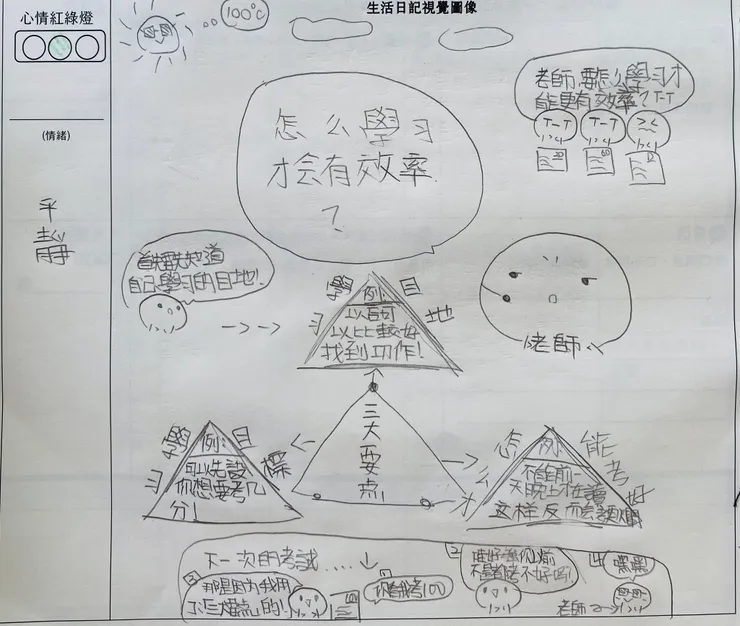 生活日記視覺圖像
心情紅綠燈
(情緒)
平
靜
100℃
老師,要怎么學习才
能更有效率?T-T
T-T
T-T
20
60
怎么學习
才会有效率
?
自己學习的目地!
老師
學习目地
例
以后可
以比較好
找到功作!
三大要点
學习目標
例:
可以先設
你想要考几
分!
怎么才能考好
例
不能前一
天晚上才在讀
这样反而会
下一次的考試.....
那是因为我用
了三大要点的!
你居然考100
不是都考不好吗!
嘿嘿
老師